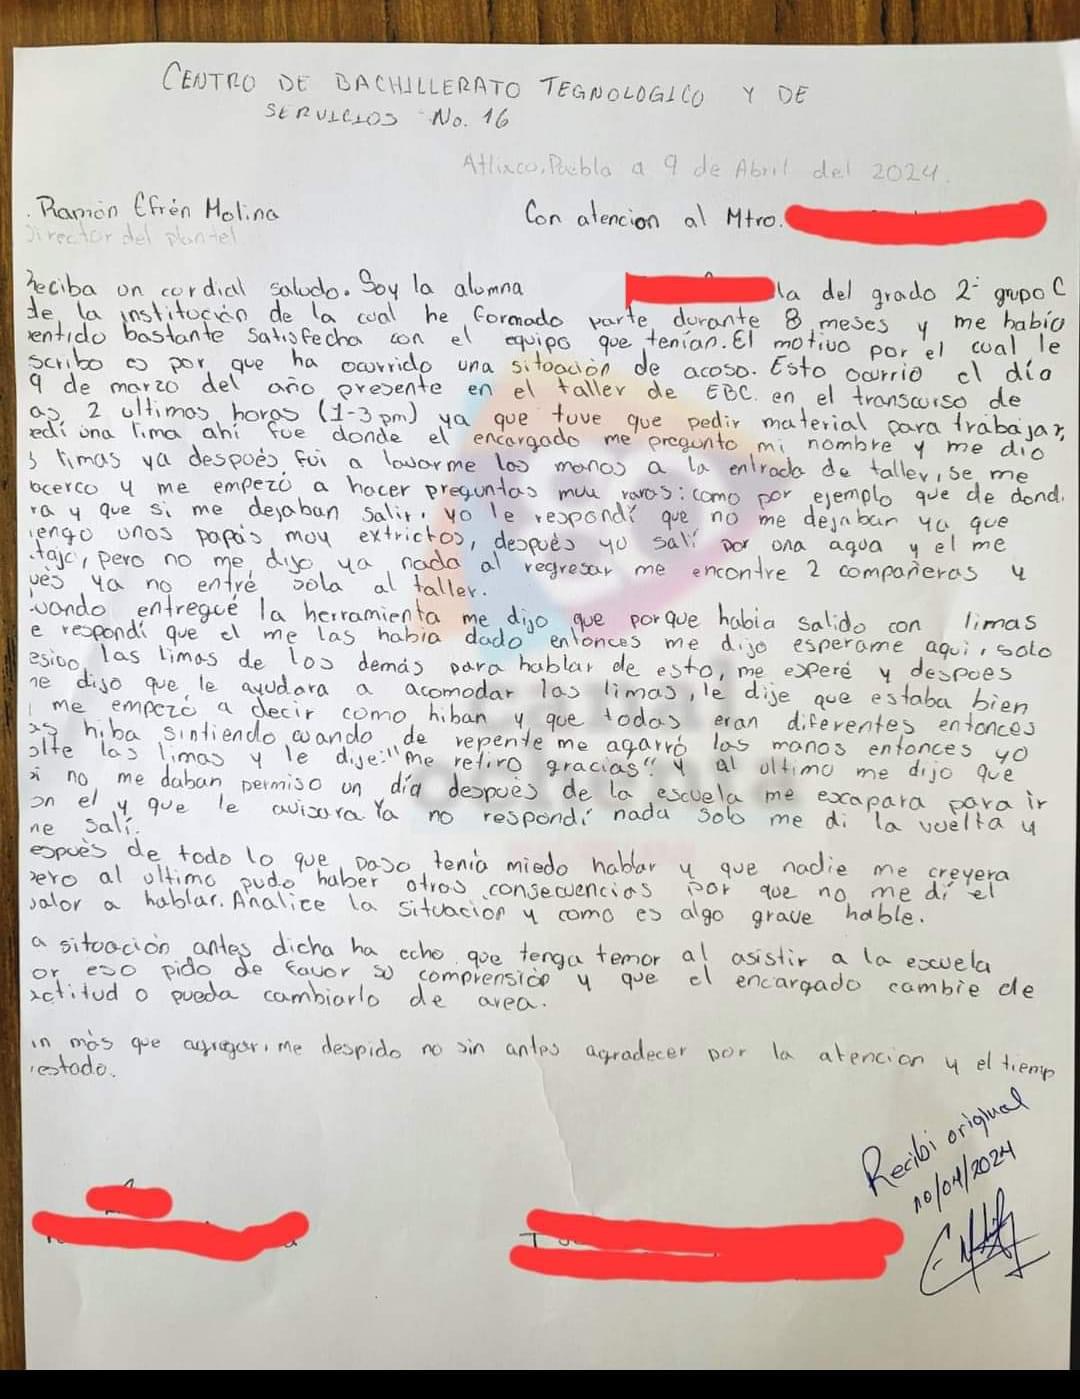 CENTRO DE BACHILLERATO TEGNOLOGICO Y DE
SERVICIOS No. 16
Atlixco, Puebla a 9 de Abril del 2024.
Ramón Efrén Molina
Con atencion al Mtro.
Director del plantel
Reciba un cordial saludo. Soy la alumna la del grado 2° grupo C
de la institución de la cual he formado parte durante 8 meses y me había
sentido bastante satisfecha con el equipo que tenían. El motivo por el cual le
scribo es por que ha ocurrido una situación de acoso. Esto ocurrio el día
9 de marzo del año presente en el taller de EBC. en el transcurso de
as 2 ultimas horas (1-3 pm) ya que tuve que pedir material para trabajar,
edí una lima ahí fue donde el encargado me pregunto mi nombre y me dio
3 limas ya después fui a lavarme las manos a la entrada de taller, se me
acerco y me empezó a hacer preguntas muu raras: como por ejemplo que de dond.
ra y que si me dejaban salir, yo le respondí que no me dejaban ya que
tengo unos papás muy extrictos, después yo salí por una agua y el me
taje, pero no me dijo ya nada al regresar me encontre 2 compañeras y
ués ya no entré sola al taller.
uando entregué la herramienta me dijo que porque había salido con limas
e respondí que el me las había dado entonces me dijo esperame aqui, solo
esivo las limas de los demás para hablar de esto, me esperé y despues
me dijo que le ayudara a acomodar las limas, le dije que estaba bien
me empezó a decir como hiban y que todas eran diferentes entonces
as hiba sintiendo cuando de repente me agarró las manos entonces yo
olte las limas y le dije: "me retiro gracias". y al ultimo me dijo que
si no me daban permiso un día después de la escuela me escapara para ir
on el y que le avisara. Ya no respondí nada solo me di la vuelta y
me salí.
espués de todo lo que paso tenía miedo hablar y que nadie me creyera
pero al ultimo pudo haber otros consecuencias por que no me dí el
valor a hablar. Analice la situación y como es algo grave hable.
a situación antes dicha ha echo que tenga temor al asistir a la escuela
or eso pido de favor su comprensión y que el encargado cambie de
actitud o pueda cambiarlo de area.
in más que agregar, me despido no sin antes agradecer por la atencion y el tiemp
restado.
Recibi original
10/04/2024